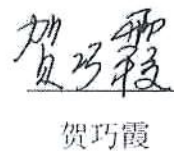 贺巧霞
贺巧霞